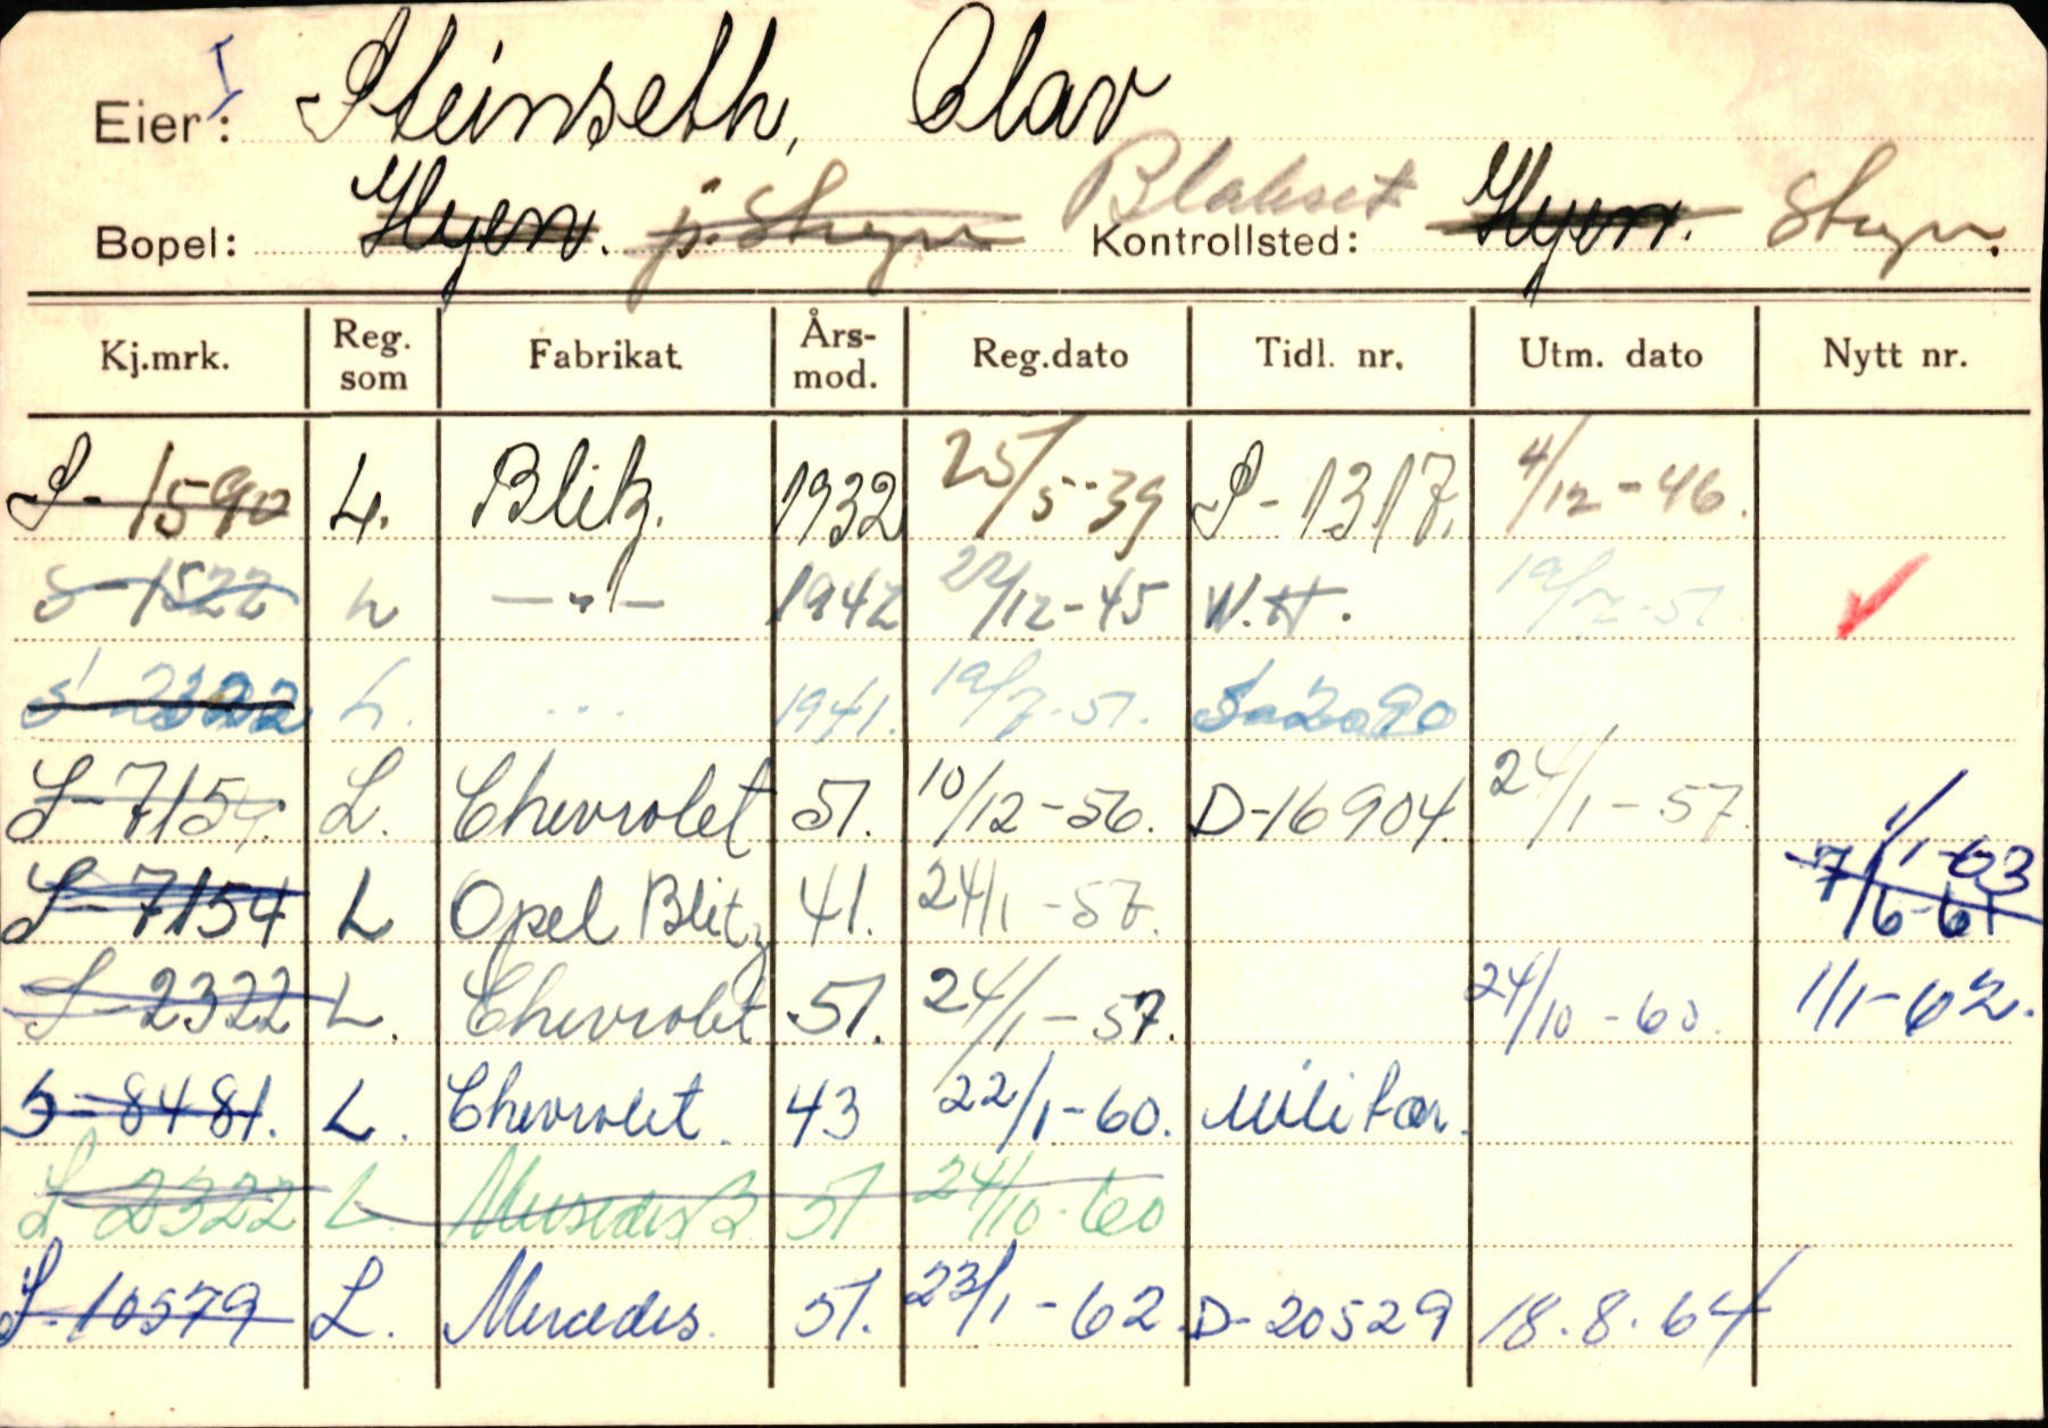 I
Eier: Steinseth, Olav
Bopel: Hyen. p. Stryn Blakset Kontrollsted: Hyen. Stryn.
Kj.mrk. Reg. som Fabrikat Års-mod. Reg.dato Tidl. nr. Utm. dato Nytt nr.
S-1590 L. Blitz. 1932 25/5-39 S-1317. 4/12-46.
S-1522 L —"— 1942 22/12-45 W.H. 19/7-51 ✓
S 2322 L. ... 1941. 19/7-51. S-2090
S-7154. L. Chevrolet 51. 10/12-56. D-16904. 24/1-57. 1/1-63
S-7154 L Opel Blitz 41. 24/1-57. 7/6-61
S-2322 L. Chevrolet 51. 24/1-57. 24/10-60. 1/1-62.
S-8481. L. Chevrolet. 43 22/1-60. Militær.
S-2322 L. Mersedes B 51 24/10-60
S-10579 L. Mercedes. 51. 23/1-62. D-20529 18.8.64